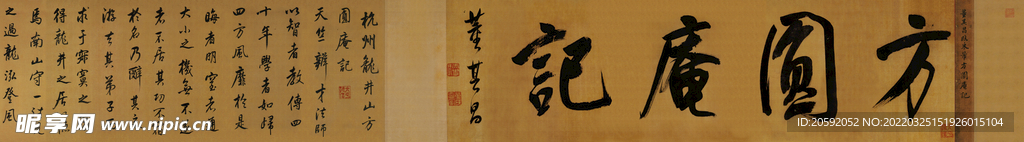 方圓庵記
董其昌
杭州龍井山方
圓庵記
天竺辯才法師
以智者教傳四
十年學者如歸
四方風靡於是
晦者明窒者通
大小之機無不遂
者不居其功不
於名乃辭其交
游去其弟子
求于寂寞之
得龍井之居
焉南山守一法
之過龍泓登風
昵享网 www.nipic.cn
ID:20592052 NO:20220325151926015104